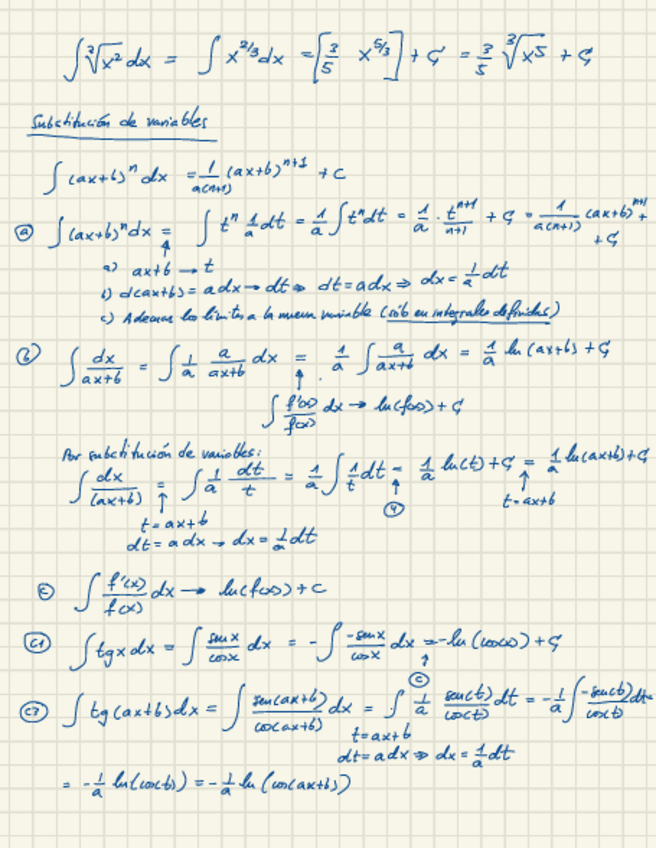 ∫ ∛x² dx = ∫ x^{2/3} dx = [3/5 x^{5/3}] + C = 3/5 ∛x⁵ + C
Substitución de variables
∫ (ax+b)^n dx = 1/(a(n+1)) (ax+b)^{n+1} + C
ⓐ ∫ (ax+b)^n dx = ∫ t^n 1/a dt = 1/a ∫ t^n dt = 1/a · t^{n+1}/(n+1) + C = 1/(a(n+1)) (ax+b)^{n+1} +
+ C
a) ax+b → t
b) d(ax+b) = a dx → dt ⇒ dt = a dx ⇒ dx = 1/a dt
c) Ademas los limits a la nueva variable (sólo en integrales definidas)
ⓑ ∫ dx/(ax+b) = ∫ 1/a a/(ax+b) dx = 1/a ∫ a/(ax+b) dx = 1/a ln(ax+b) + C
∫ f'(x)/f(x) dx → ln(f(x)) + C
Por substitución de variables:
∫ dx/(ax+b) = ∫ 1/a dt/t = 1/a ∫ 1/t dt = 1/a ln(t) + C = 1/a ln(ax+b) + C
t = ax+b
t = ax+b
dt = a dx → dx = 1/a dt
ⓒ ∫ f'(x)/f(x) dx → ln(f(x)) + C
(C1) ∫ tg x dx = ∫ sen x/cos x dx = - ∫ -sen x/cos x dx = -ln(cos(x)) + C
ⓒ
∫ tg(ax+b) dx = ∫ sen(ax+b)/cos(ax+b) dx = ∫ 1/a sen(t)/cos(t) dt = -1/a ∫ -sen(t)/cos(t) dt =
t = ax+b
dt = a dx ⇒ dx = 1/a dt
= -1/a ln(cos(t)) = -1/a ln(cos(ax+b))